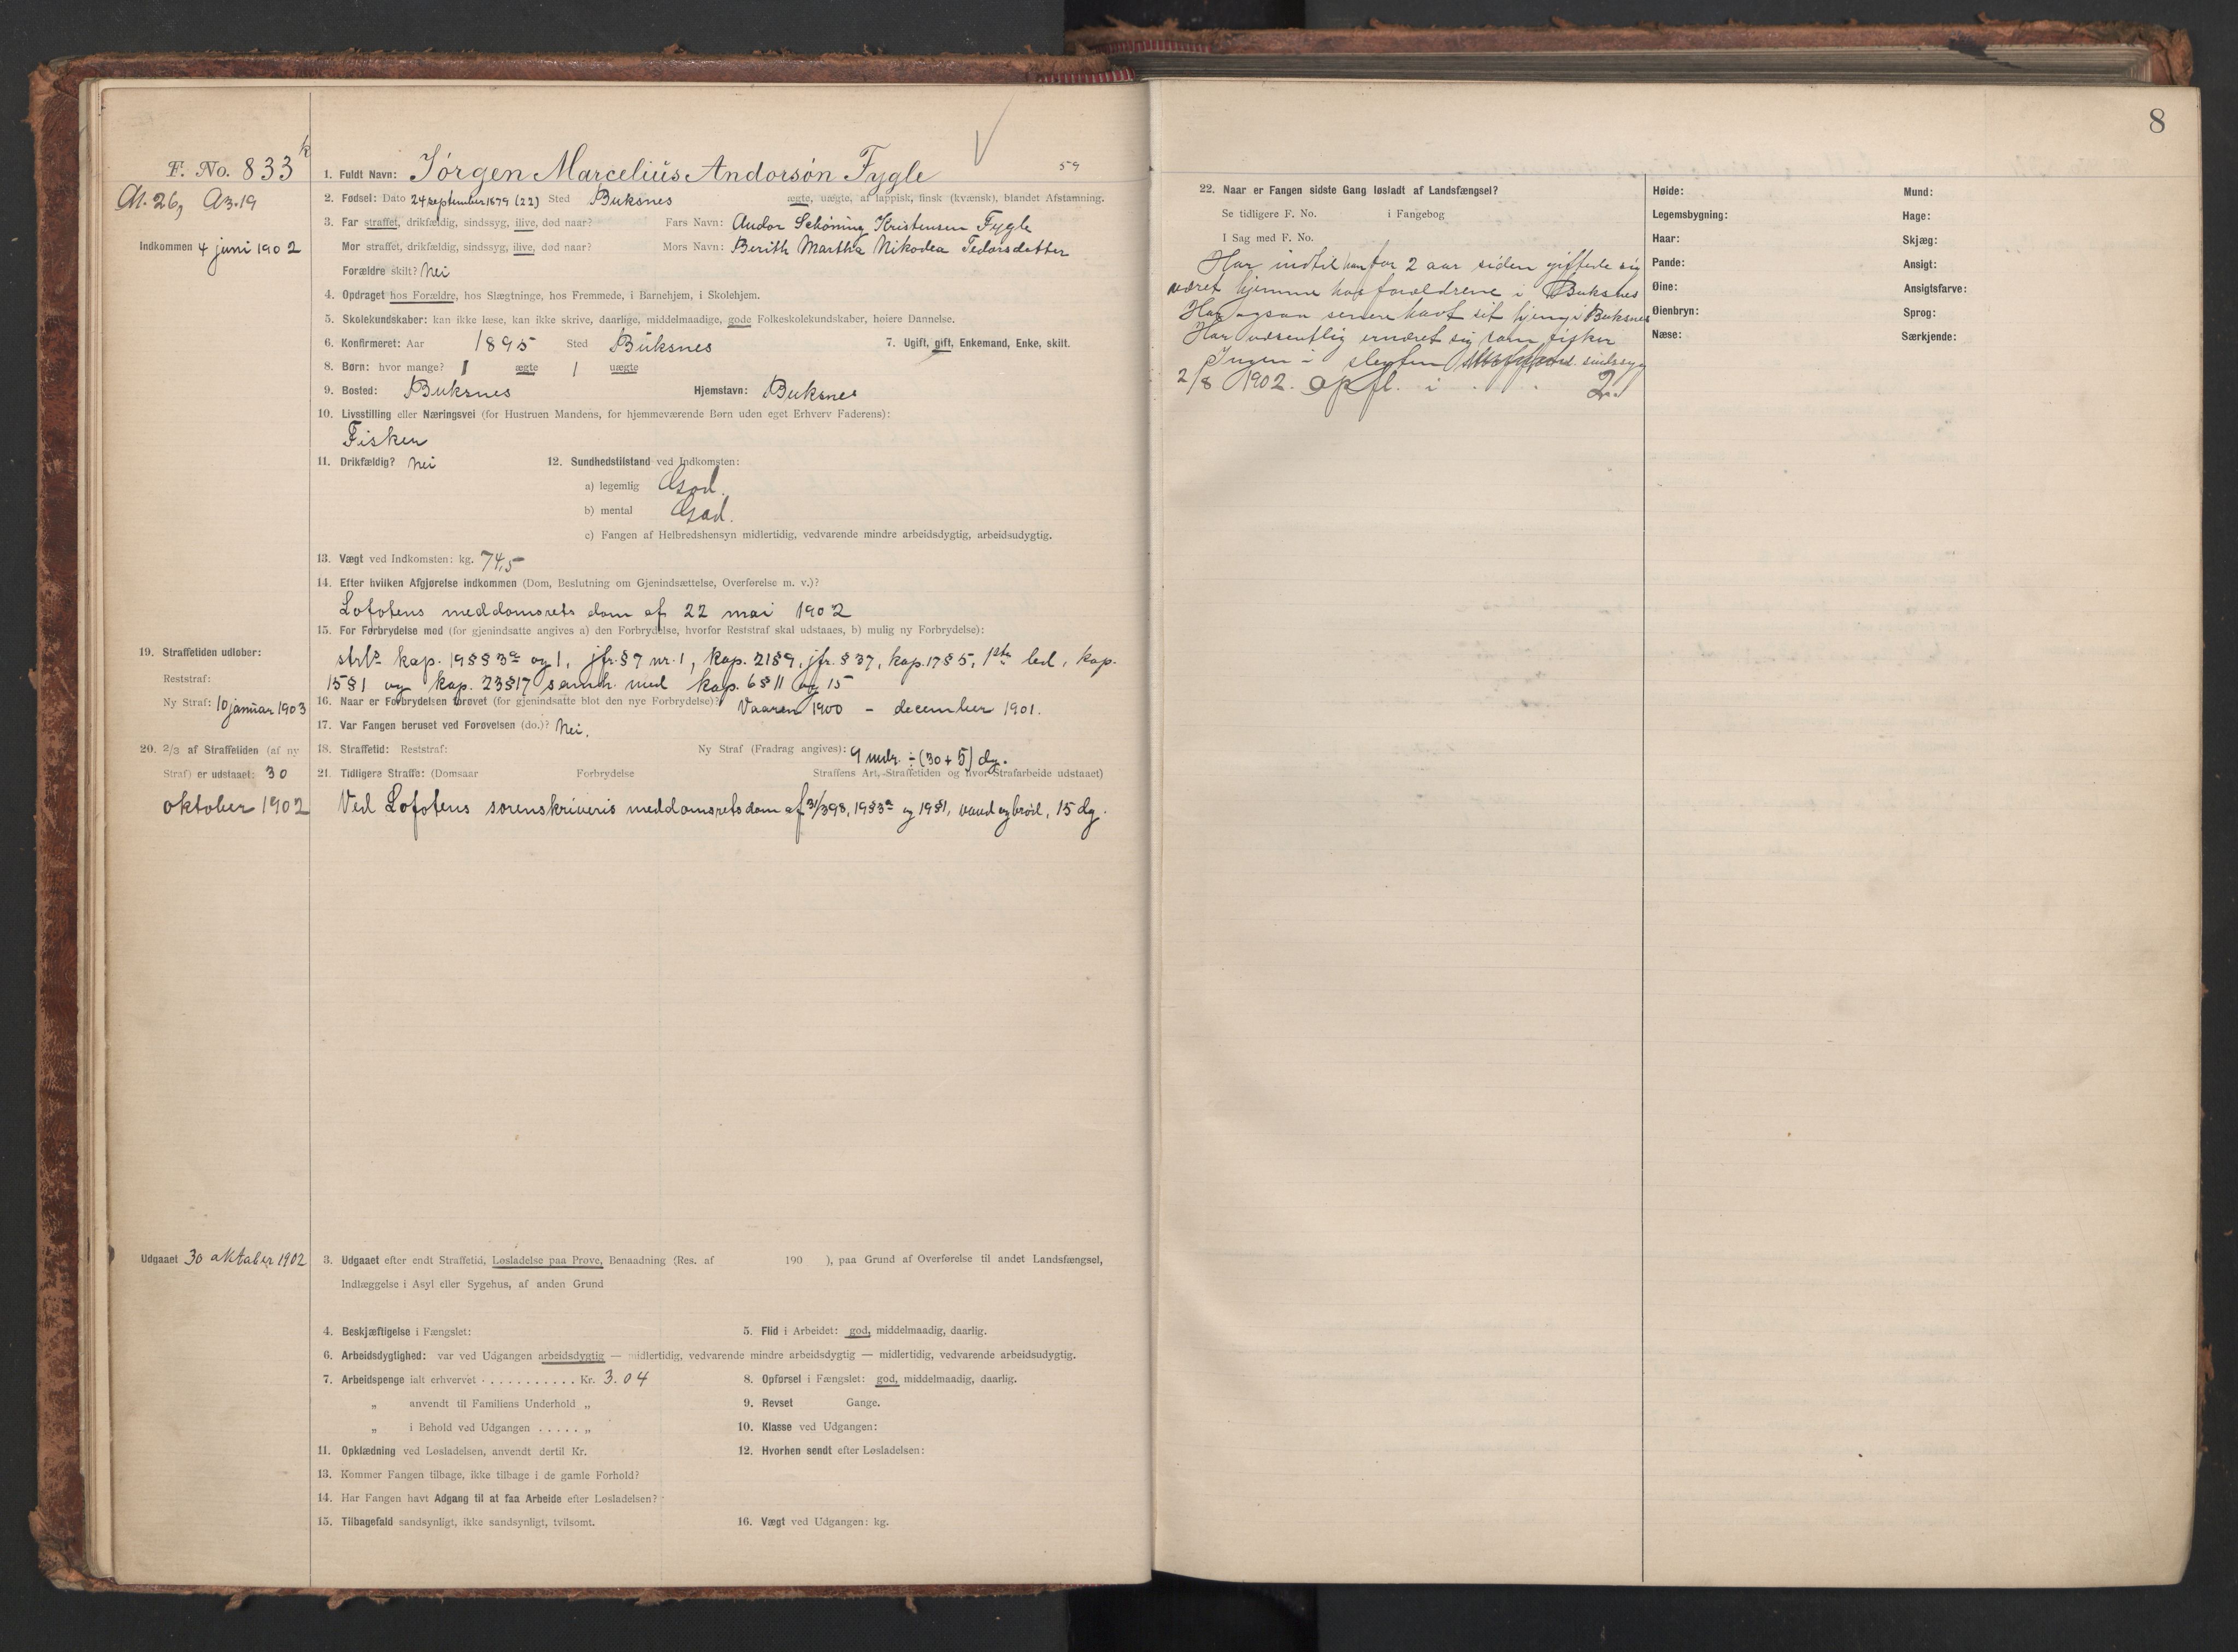 8
F. No. 833 k
1. Fuldt Navn: Jørgen Marcelius Andorsøn Fygle 59
A1. 26, A3.19
2. Fødsel: Dato 24 september 1879 (22) Sted Buksnes ægte, uægte, af lappisk, finsk (kvænsk), blandet Afstamning.
3. Far straffet, drikfældig, sindssyg, ilive, død naar? Fars Navn: Andor Schøning Kristensen Fygle
Indkommen 4 juni 1902
Mor straffet, drikfældig, sindssyg, ilive, død naar? Mors Navn: Berith Martha Nikodea Tedorsdatter
Forældre skilt? Nei
4. Opdraget hos Forældre, hos Slægtninge, hos Fremmede, i Barnehjem, i Skolehjem.
5. Skolekundskaber: kan ikke læse, kan ikke skrive, daarlige, middelmaadige, gode Folkeskolekundskaber, høiere Dannelse.
6. Konfirmeret: Aar 1895 Sted Buksnes 7. Ugift, gift, Enkemand, Enke, skilt.
8. Børn: hvor mange? 1 ægte 1 uægte
9. Bosted: Buksnes Hjemstavn: Buksnes
10. Livsstilling eller Næringsvei (for Hustruen Mandens, for hjemmeværende Børn uden eget Erhverv Faderens):
Fisker
11. Drikfældig? Nei 12. Sundhedstilstand ved Indkomsten:
a) legemlig God.
b) mental God.
c) Fangen af Helbredshensyn midlertidig, vedvarende mindre arbeidsdygtig, arbeidsudygtig.
13. Vægt ved Indkomsten: kg. 74,5
14. Efter hvilken Afgjørelse indkommen (Dom, Beslutning om Gjenindsættelse, Overførelse m. v.)?
Lofotens meddomsrets dom af 22 mai 1902
15. For Forbrydelse mod (for gjenindsatte angives a) den Forbrydelse, hvorfor Reststraf skal udstaaes, b) mulig ny Forbrydelse):
strl. kap. 19 §§ 3 a og 1, jfr. § 7 nr. 1, kap. 21 § 9, jfr. § 37, kap. 17 § 5, 1ste led, kap.
15 § 1 og kap. 23 § 17 samh. med kap. 6 § 11 og 15
19. Straffetiden udløber:
Reststraf:
Ny Straf: 10 januar 1903
16. Naar er Forbrydelsen forøvet (for gjenindsatte blot den nye Forbrydelse)? Vaaren 1900 – december 1901.
17. Var Fangen beruset ved Forøvelsen (do.)? Nei.
20. 2/3 af Straffetiden (af ny
Straf) er udstaaet: 30
oktober 1902
18. Straffetid: Reststraf: Ny Straf (Fradrag angives): 9 mdr. ÷ (30 + 5) dg.
21. Tidligere Straffe: (Domsaar Forbrydelse Straffens Art, Straffetiden og hvor Strafarbeide udstaaet)
Ved Lofotens sorenskriveris meddomsrets dom af 31/3 98, 19 § 3 a og 19 § 1, vand og brød, 15 dg.
Udgaaet 30 oktober 1902
3. Udgaaet efter endt Straffetid, Løsladelse paa Prøve, Benaadning (Res. af 190 ), paa Grund af Overførelse til andet Landsfængsel,
Indlæggelse i Asyl eller Sygehus, af anden Grund
4. Beskjæftigelse i Fængslet: 5. Flid i Arbeidet: god, middelmaadig, daarlig.
6. Arbeidsdygtighed: var ved Udgangen arbeidsdygtig — midlertidig, vedvarende mindre arbeidsdygtig — midlertidig, vedvarende arbeidsudygtig.
7. Arbeidspenge ialt erhvervet . . . . . . . . . . . Kr. 3.04 8. Opførsel i Fængslet: god, middelmaadig, daarlig.
„ anvendt til Familiens Underhold „ 9. Revset Gange.
„ i Behold ved Udgangen . . . . . „ 10. Klasse ved Udgangen:
11. Opklædning ved Løsladelsen, anvendt dertil Kr. 12. Hvorhen sendt efter Løsladelsen:
13. Kommer Fangen tilbage, ikke tilbage i de gamle Forhold?
14. Har Fangen havt Adgang til at faa Arbeide efter Løsladelsen?
15. Tilbagefald sandsynligt, ikke sandsynligt, tvilsomt. 16. Vægt ved Udgangen: kg.
22. Naar er Fangen sidste Gang løsladt af Landsfængsel?
Se tidligere F. No. i Fangebog
I Sag med F. No.
Har indtil han for 2 aar siden giftede sig
været hjemme hos forældrene i Buksnes
Har ogsaa senere havt sit hjem i Buksnes
Har væsentlig ernæret sig som fisker
Ingen i slegten sindssyg
2/8 1902. Opfl. i 2.
Høide: Mund:
Legemsbygning: Hage:
Haar: Skjæg:
Pande: Ansigt:
Øine: Ansigtsfarve:
Øienbryn: Sprog:
Næse: Særkjende: